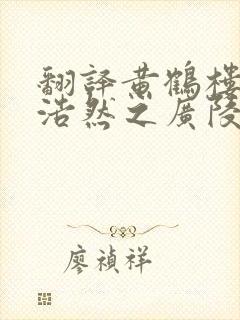 翻譯黄鶴樓
浩然之廣陵
廖禎祥